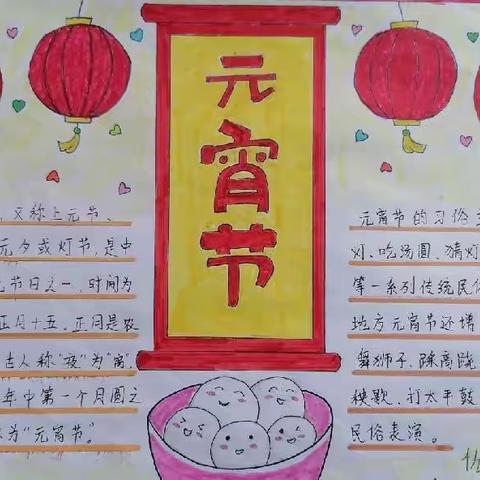 元宵节
，又称上元节、
元夕或灯节，是中
节日之一，时间为
正月十五。正月是农
古人称“夜”为“宵”
年中第一个月圆之
为“元宵节”。
元宵节的习俗
灯、吃汤圆、猜灯
等一系列传统民
地方元宵节还增
舞狮子、踩高跷
秧歌、打太平鼓
民俗表演。